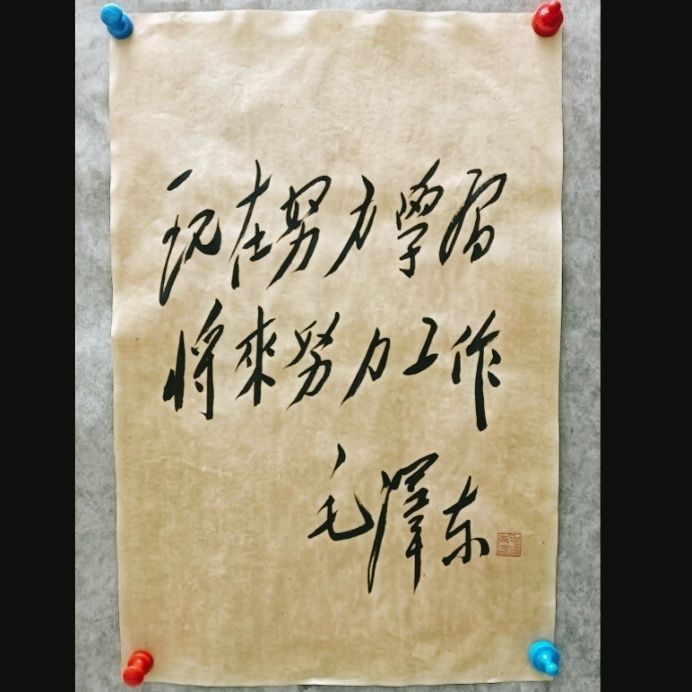 现在努力學習
将來努力工作
毛澤东